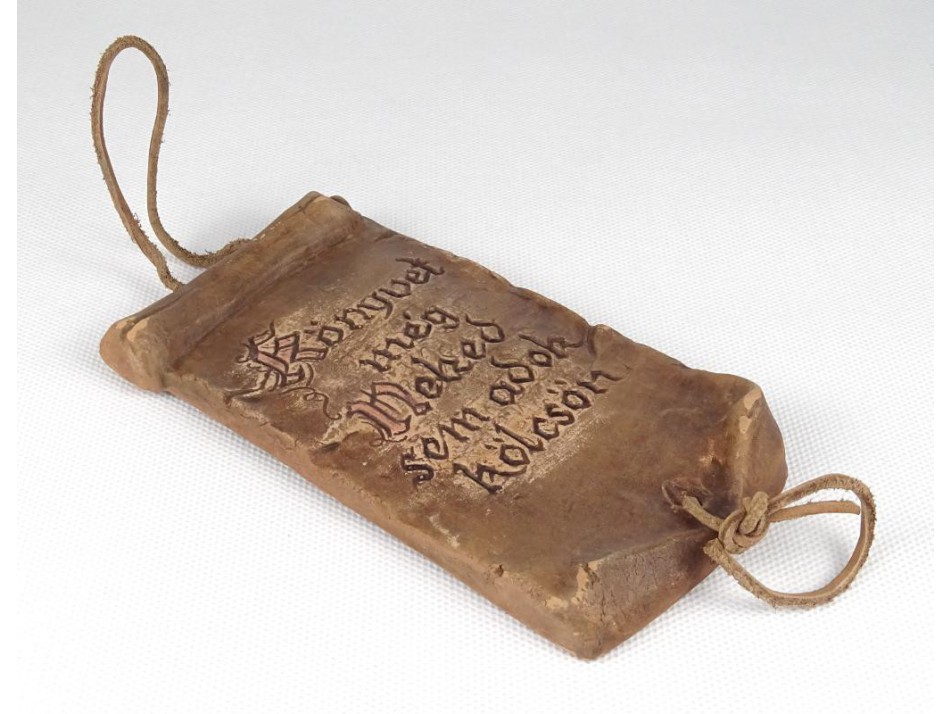 Könyvet
még
Neked
sem adok
kölcsön